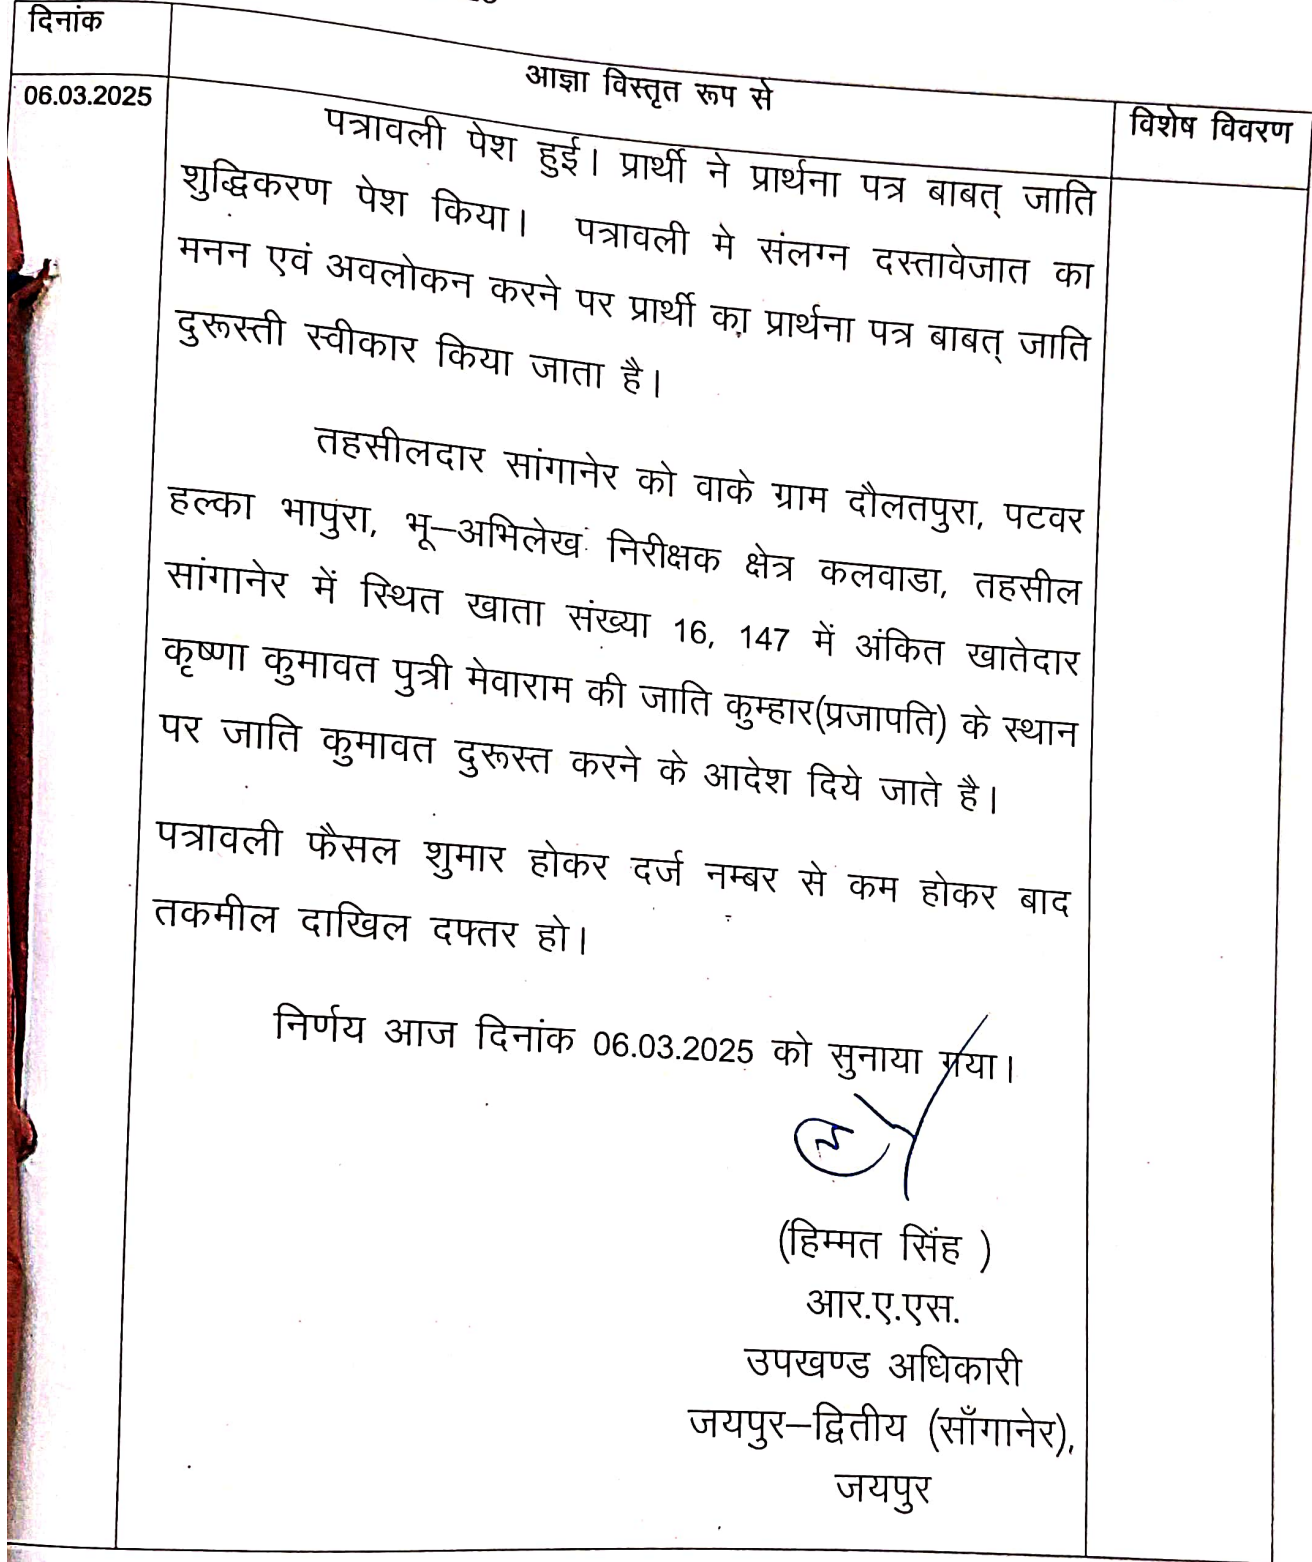 दिनांक
आज्ञा विस्तृत रूप से
विशेष विवरण
06.03.2025
पत्रावली पेश हुई। प्रार्थी ने प्रार्थना पत्र बाबत् जाति
शुद्धिकरण पेश किया। पत्रावली मे संलग्न दस्तावेजात का
मनन एवं अवलोकन करने पर प्रार्थी का प्रार्थना पत्र बाबत् जाति
दुरूस्ती स्वीकार किया जाता है।
तहसीलदार सांगानेर को वाके ग्राम दौलतपुरा, पटवर
हल्का भापुरा, भू–अभिलेख निरीक्षक क्षेत्र कलवाडा, तहसील
सांगानेर में स्थित खाता संख्या 16, 147 में अंकित खातेदार
कृष्णा कुमावत पुत्री मेवाराम की जाति कुम्हार(प्रजापति) के स्थान
पर जाति कुमावत दुरूस्त करने के आदेश दिये जाते है।
पत्रावली फैसल शुमार होकर दर्ज नम्बर से कम होकर बाद
तकमील दाखिल दफ्तर हो।
निर्णय आज दिनांक 06.03.2025 को सुनाया गया।
(हिम्मत सिंह )
आर.ए.एस.
उपखण्ड अधिकारी
जयपुर–द्वितीय (साँगानेर),
जयपुर